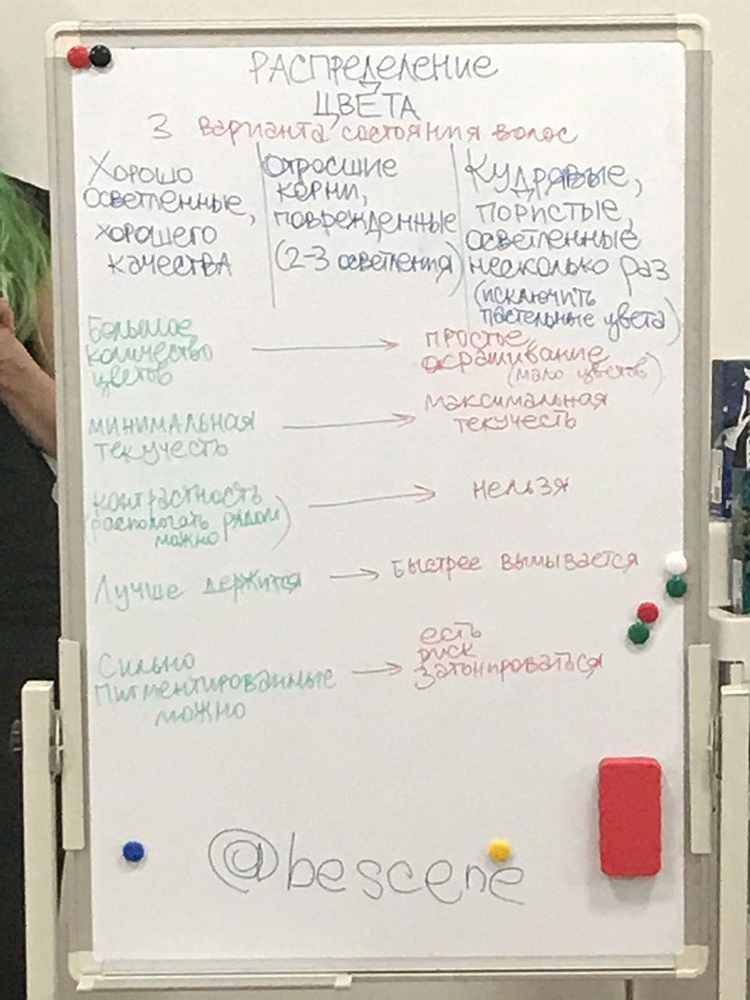 РАСПРЕДЕЛЕНИЕ
ЦВЕТА
3 варианта состояния волос
Хорошо
осветленные,
хорошего
качества
Отросшие
корни,
поврежденные
(2-3 осветления)
Кудрявые,
пористые,
осветленные
несколько раз
(исключить
пастельные цвета)
Большое
количество
цветов
простые
окрашивание
(мало цветов)
минимальная
текучесть
максимальная
текучесть
контрастность
(распологать рядом
можно)
нельзя
Лучше держится
Быстрее вымывается
Сильно
пигментированные
можно
есть
риск
затонироваться
@bescene